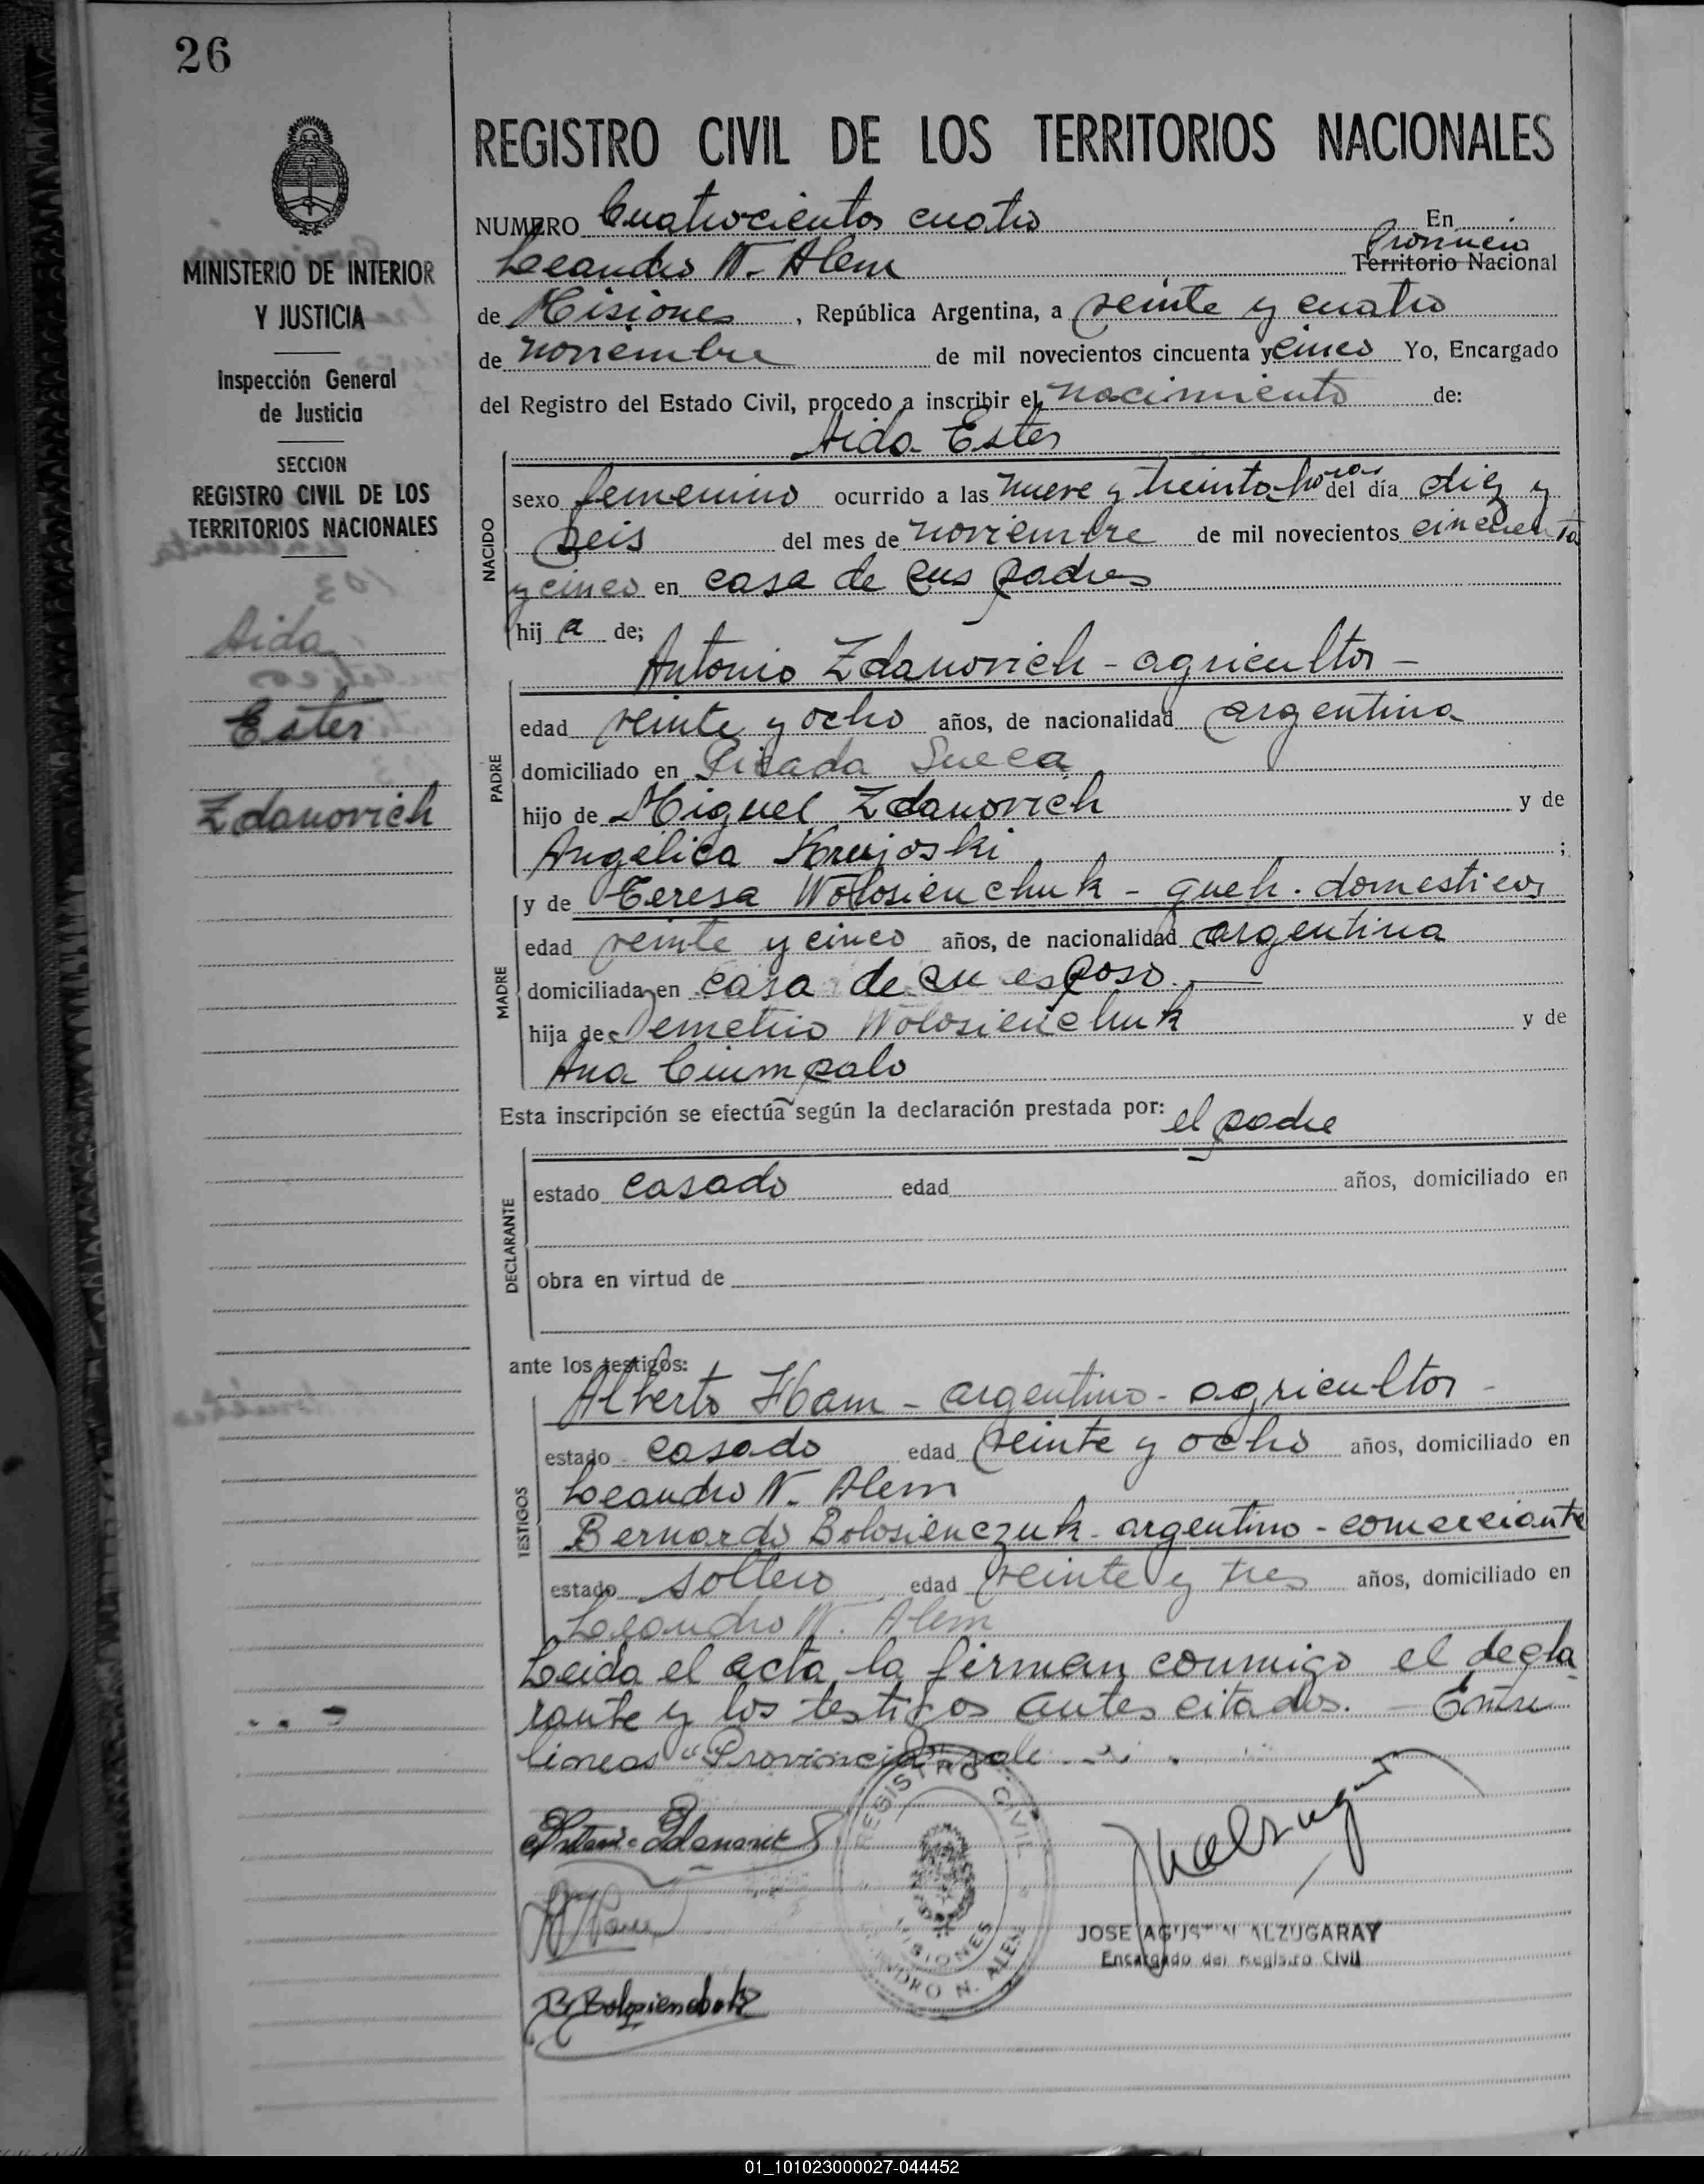 26
MINISTERIO DE INTERIOR
Y JUSTICIA
Inspección General
de Justicia
SECCION
REGISTRO CIVIL DE LOS
TERRITORIOS NACIONALES
Aida
Ester
Zdanovich
REGISTRO CIVIL DE LOS TERRITORIOS NACIONALES
NUMERO Cuatrocientos cuatro En
Provincia
Leandro N. Alem Territorio Nacional
de Misiones, República Argentina, a veinte y cuatro
de noviembre de mil novecientos cincuenta y cinco Yo, Encargado
del Registro del Estado Civil, procedo a inscribir el nacimiento de:
Aida Ester
NACIDO
sexo femenino ocurrido a las nueve y treinta horas del día diez y
seis del mes de noviembre de mil novecientos cincuenta
y cinco en casa de sus padres
hij a de;
Antonio Zdanovich - agricultor -
PADRE
edad veinte y ocho años, de nacionalidad argentina
domiciliado en Picada Sueca
hijo de Miguel Zdanovich y de
Angélica ;
y de Teresa Wolosienchuk - queh. domesticos
MADRE
edad veinte y cinco años, de nacionalidad argentina
domiciliada en casa de su esposo.
hija de Demetrio Wolosienchuk y de
Ana
Esta inscripción se efectúa según la declaración prestada por: el padre
DECLARANTE
estado casado edad años, domiciliado en
obra en virtud de
ante los testigos:
Alberto - argentino - agricultor -
TESTIGOS
estado casado edad veinte y ocho años, domiciliado en
Leandro N. Alem
Bernardo Bolosienczuk - argentino - comerciante
estado soltero edad veinte y tres años, domiciliado en
Leandro N. Alem
Leida el acta la firman conmigo el decla
rante y los testigos antes citados. - Entre
lineas "Provincia" vale
REGISTRO CIVIL
MISIONES
LEANDRO N. ALEM
JOSE AGUSTIN ALZUGARAY
Encargado del Registro Civil
01_101023000027-044452